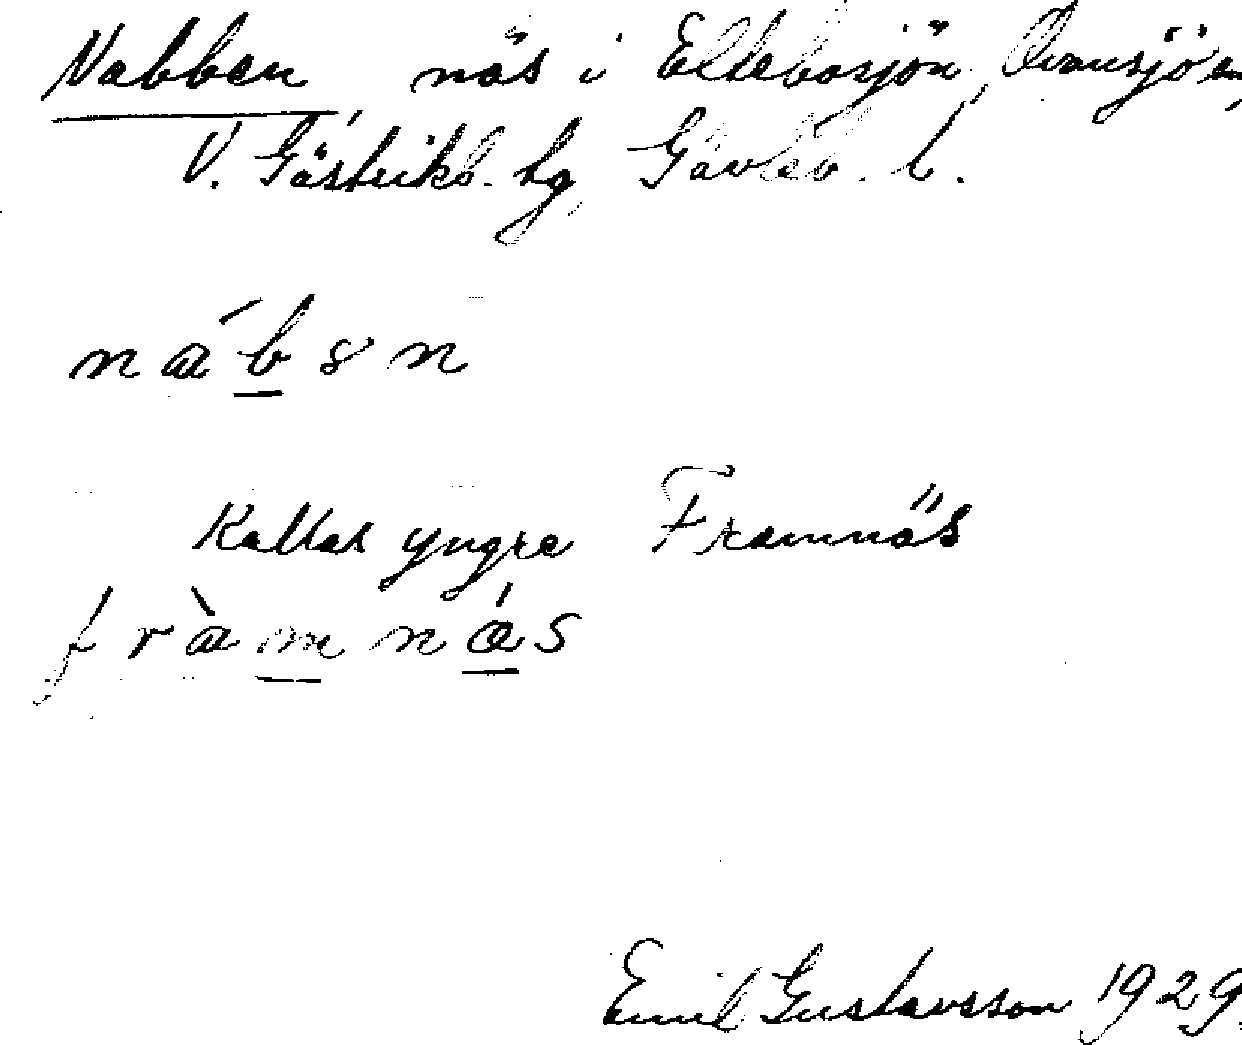 Nabben, näs i Eltebosjön, Ovansjö sn,
V. Gästrikl. tg, Gävleb. l.
nábən
Kallas yngre Framnäs
fràmnás
Emil Gustavsson 1929.